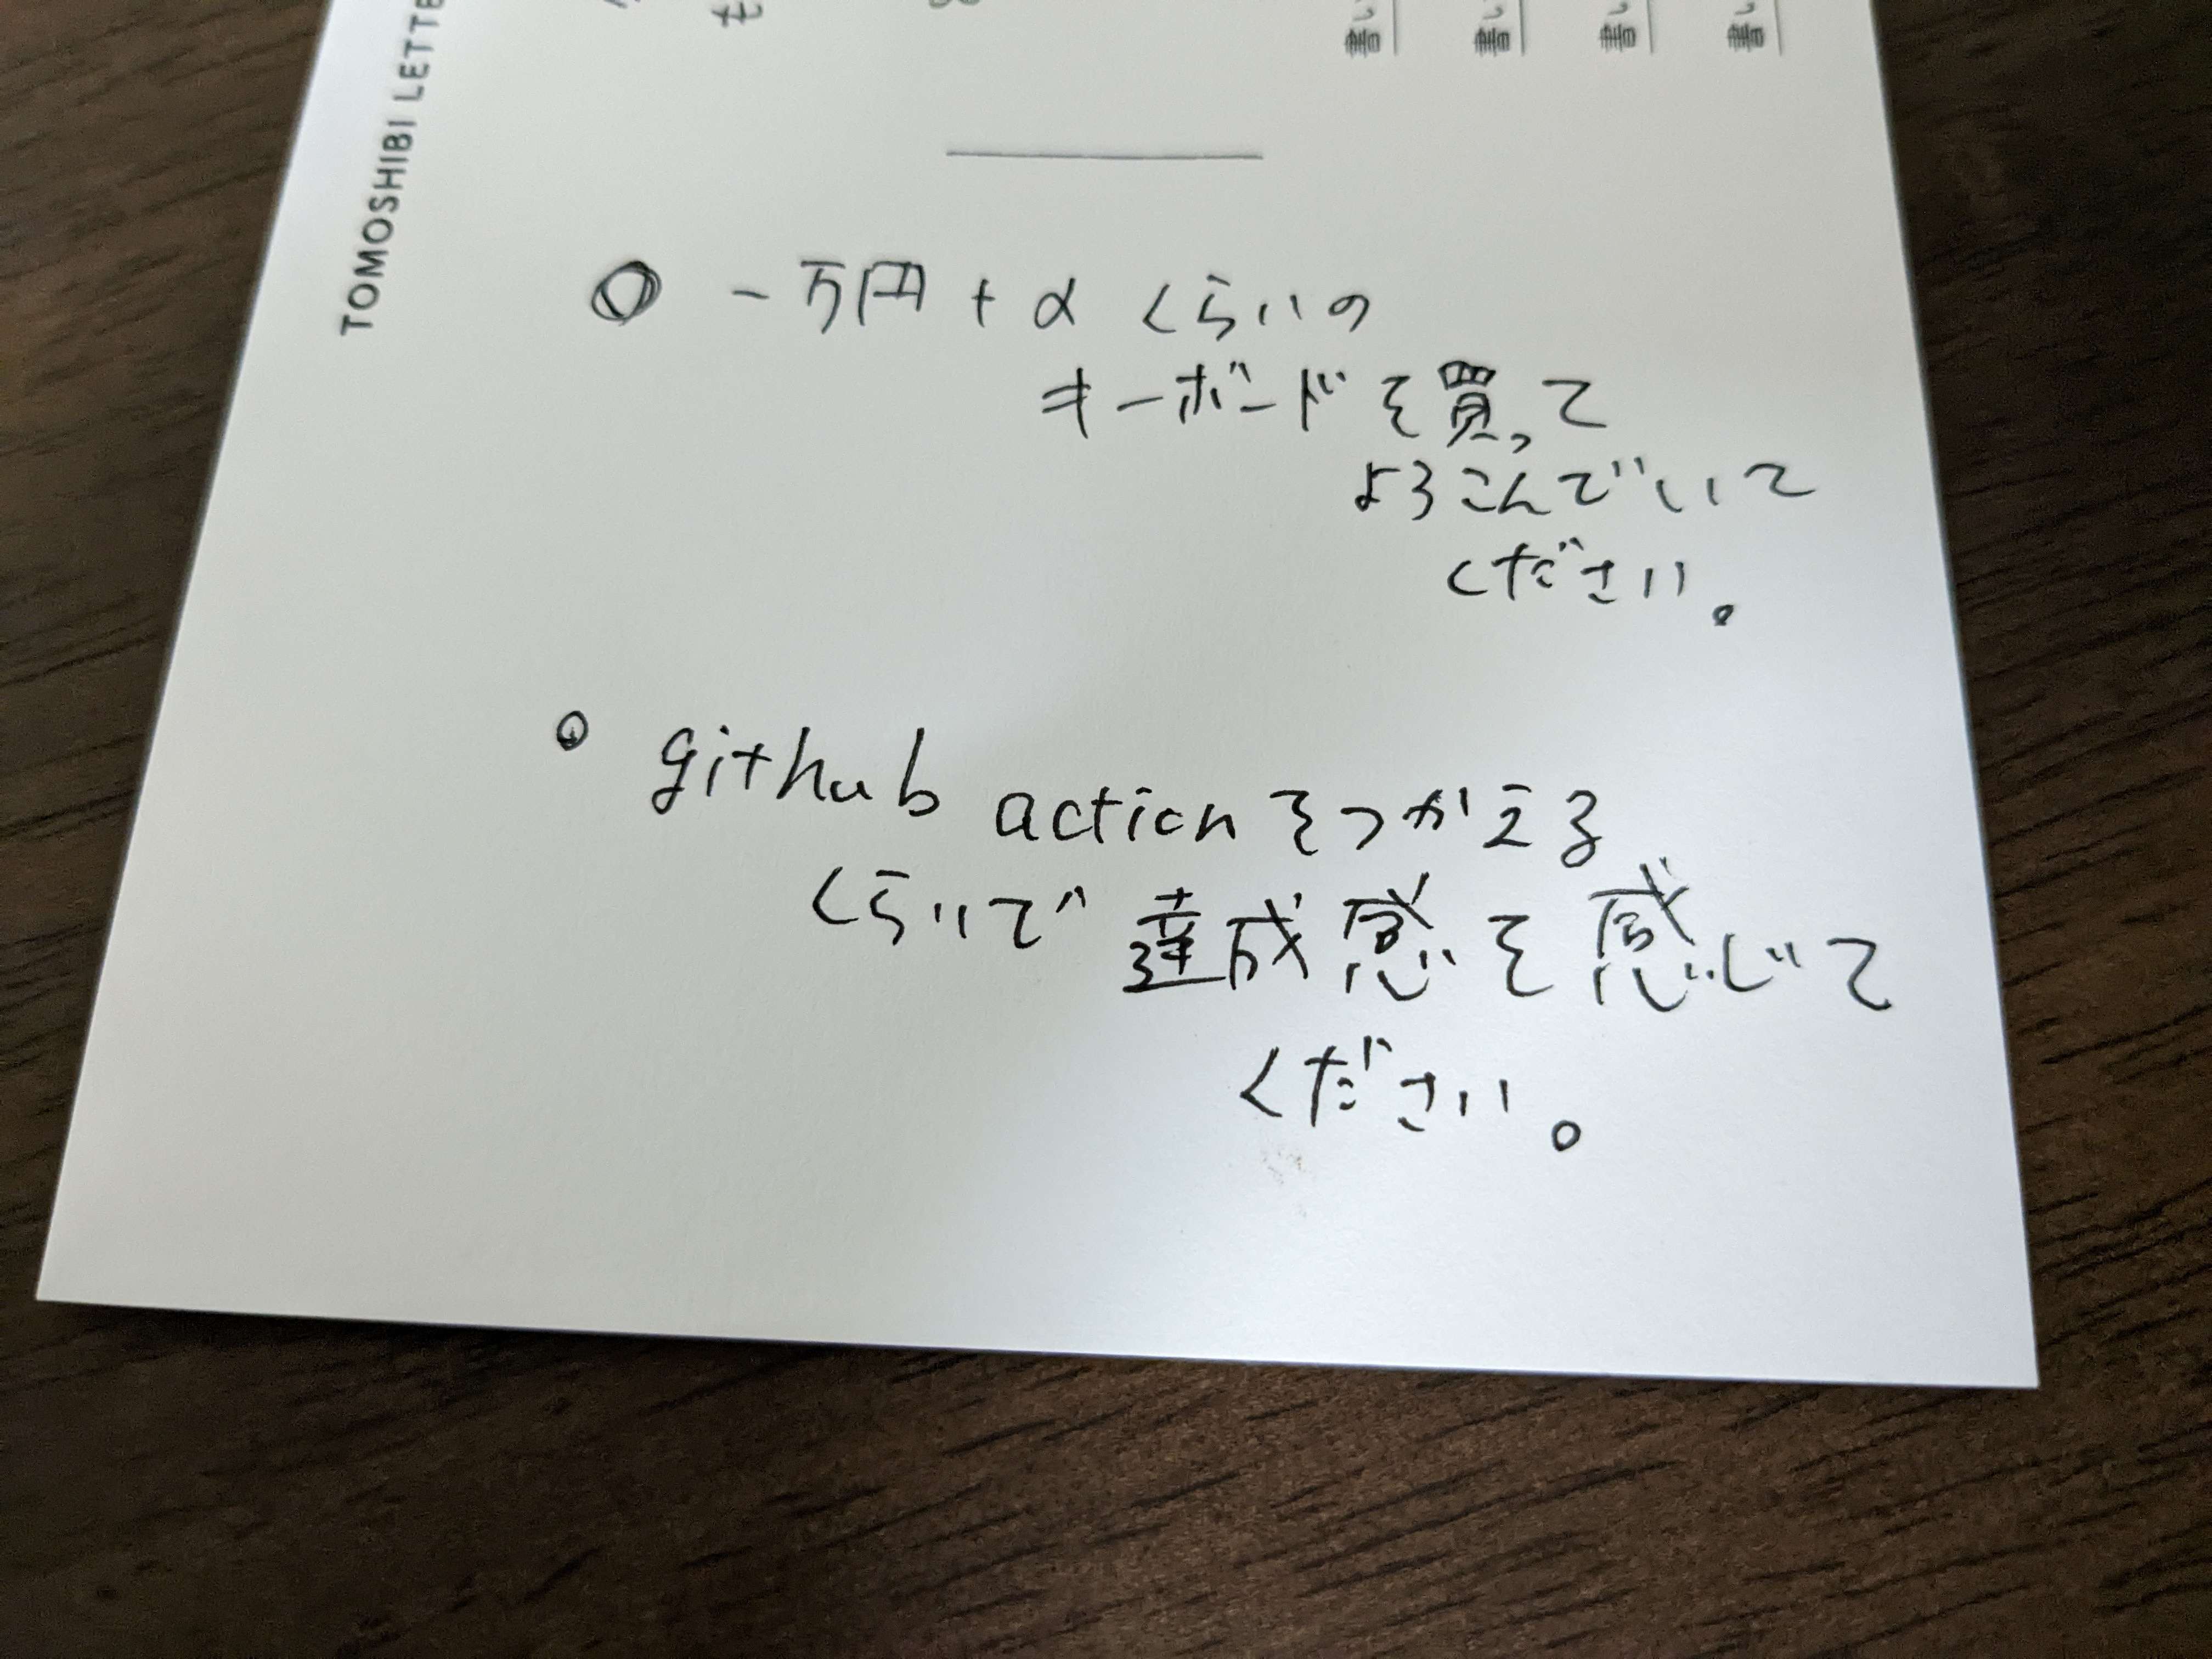 TOMOSHIBI LETTE
も
一万円+αくらいの
キーボードを買って
よろこんでいて
ください。
github actionをつかえる
くらいで達成感を感じて
ください。